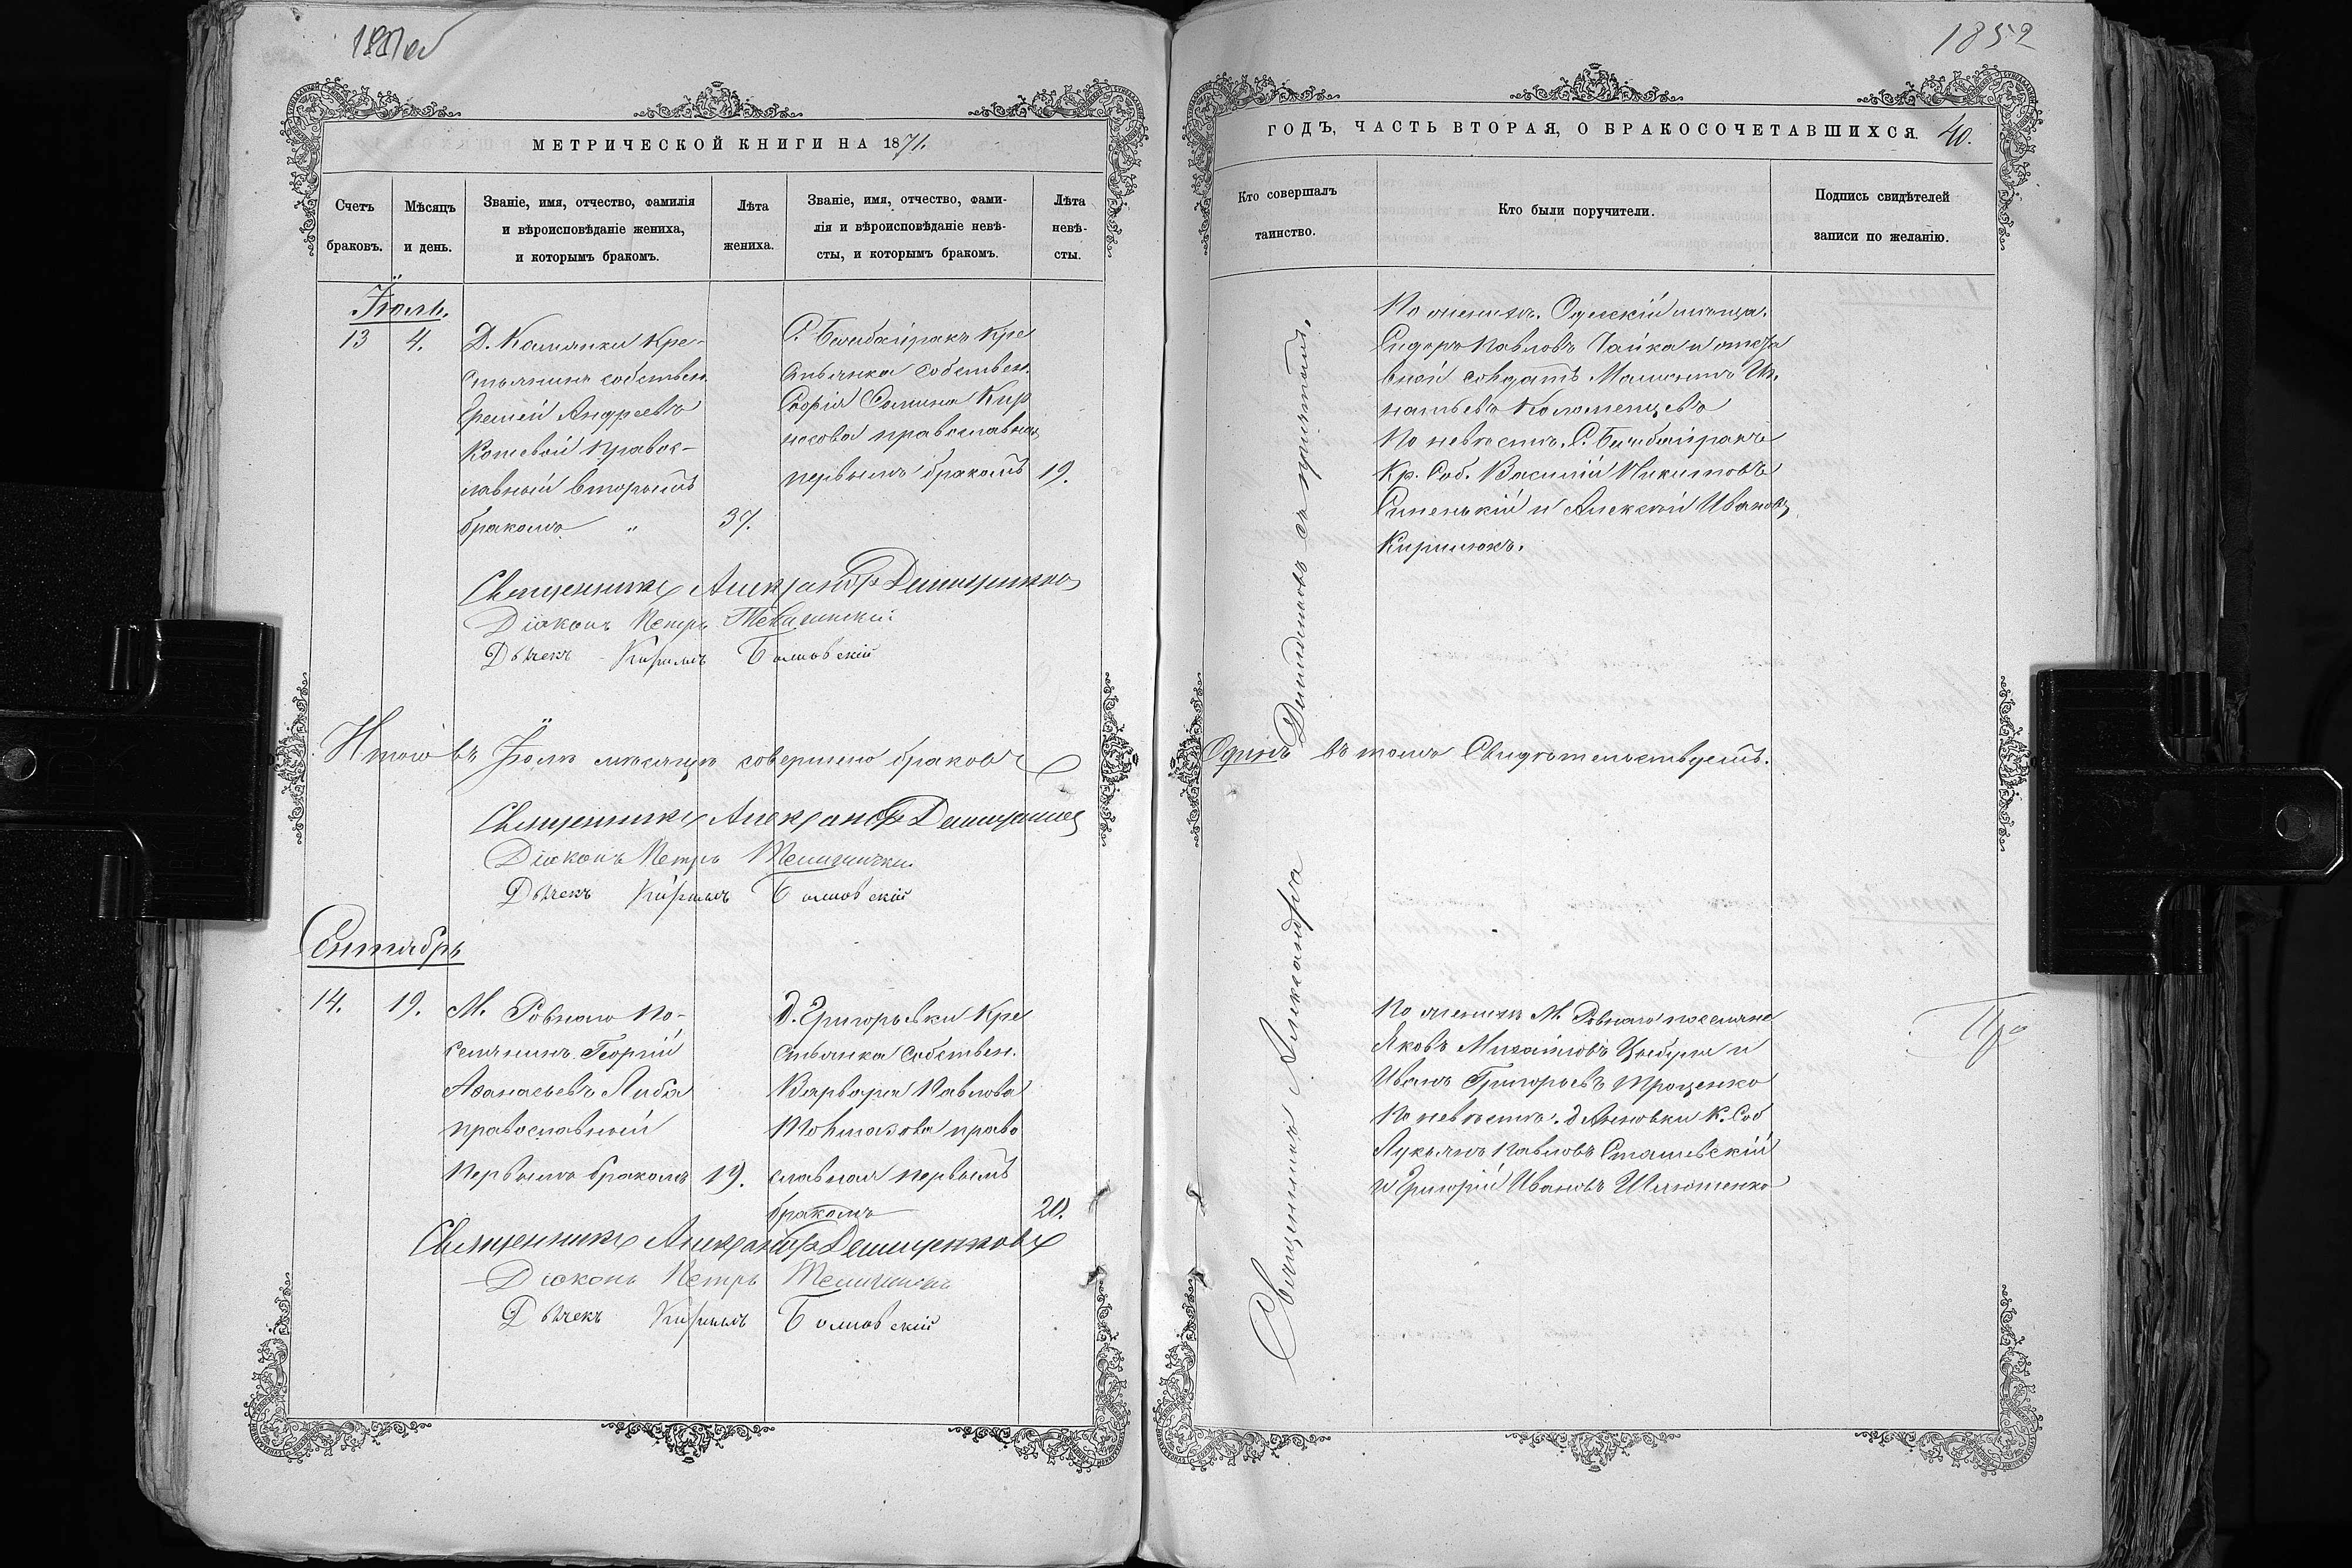 1852
МЕТРИЧЕСКОЙ КНИГИ НА 1871.
Счетъ браковъ.
Мѣсяцъ и день.
Званіе, имя, отчество, фамилія
и вѣроисповѣданіе жениха,
и которымъ бракомъ.
Лѣта жениха.
Званіе, имя, отчество, фами-
лія и вѣроисповѣданіе невѣ-
сты, и которымъ бракомъ.
Лѣта невѣ-
сты.
Їюль.
13
4.
Д. Камянки Кре-
стьянинъ собствен.
Еремей Андреевъ
Кошевой правос-
лавный вторымъ
бракомъ "
37.
С. Бешбайракъ Кре
стьянка собствен.
Софія Сомина Кир
носова православная
первымъ бракомъ
19.
Священникъ Александръ
Діаконъ Петръ
Дьячекъ Кирилъ
Итого въ Їюлѣ мѣсяцѣ совершено браковъ
Священникъ Александръ
Діаконъ Петръ
Дьячекъ Кирилъ
Сентябрь
14.
19.
М. Ровнаго По-
селянинъ Георгій
Аѳанасьевъ Либа
православный
первымъ бракомъ
19.
д. Григорьевки Кре
стьянка Собствен.
Варвара Павлова
право
славная первымъ
бракомъ
20.
Священникъ Александръ
Діаконъ Петръ
Дьячекъ Кирилъ
ГОДЪ, ЧАСТЬ ВТОРАЯ, О БРАКОСОЧЕТАВШИХСЯ. 40.
Кто совершалъ
таинство.
Кто были поручители.
Подпись свидѣтелей
записи по желанію.
Священникъ Александръ съ причтомъ.
По женихѣ. Одесскій мѣща.
Сидоръ Павловъ Чайка и отста
вной солдатъ Ми
натьевъ Коломейцевъ
По невѣстѣ. С. Бешбайракъ
Кр. Соб. Василій Никитовъ
Синенькій и Алексѣй Ивановъ
Кирилюкъ.
Одинъ въ томъ Свидѣтельствуемъ.
По женихѣ М. Ровнаго поселяне
Яковъ Михайловъ Цыбуля и
Иванъ Григорьевъ Троценко
По невѣстѣ. д Анновки К. Соб
Лукьянъ Павловъ Сташевскій
и Григорій Ивановъ